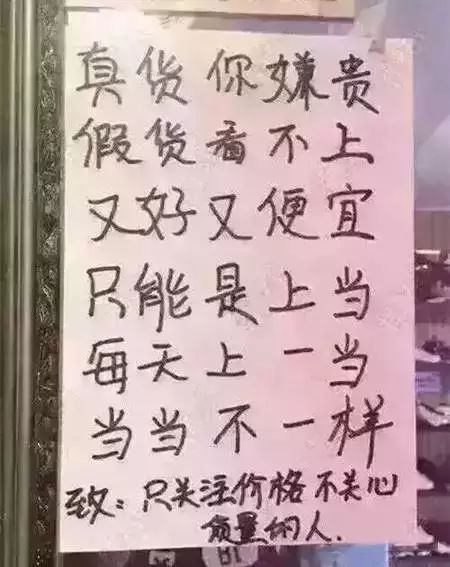 真货你嫌贵
假货看不上
又好又便宜
只能是上当
每天上一当
当当不一样
致：只关注价格不关心
质量的人.